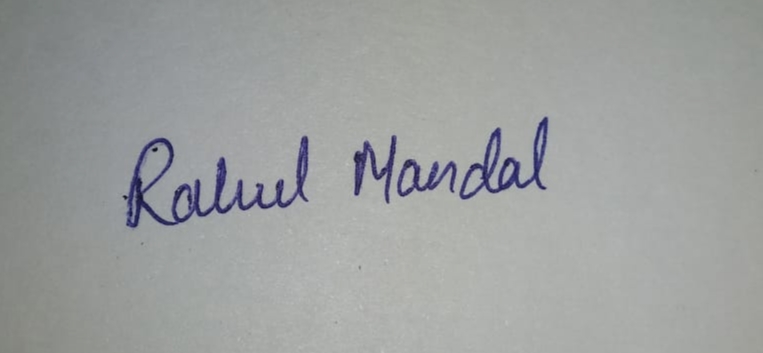 Rahul Mandal